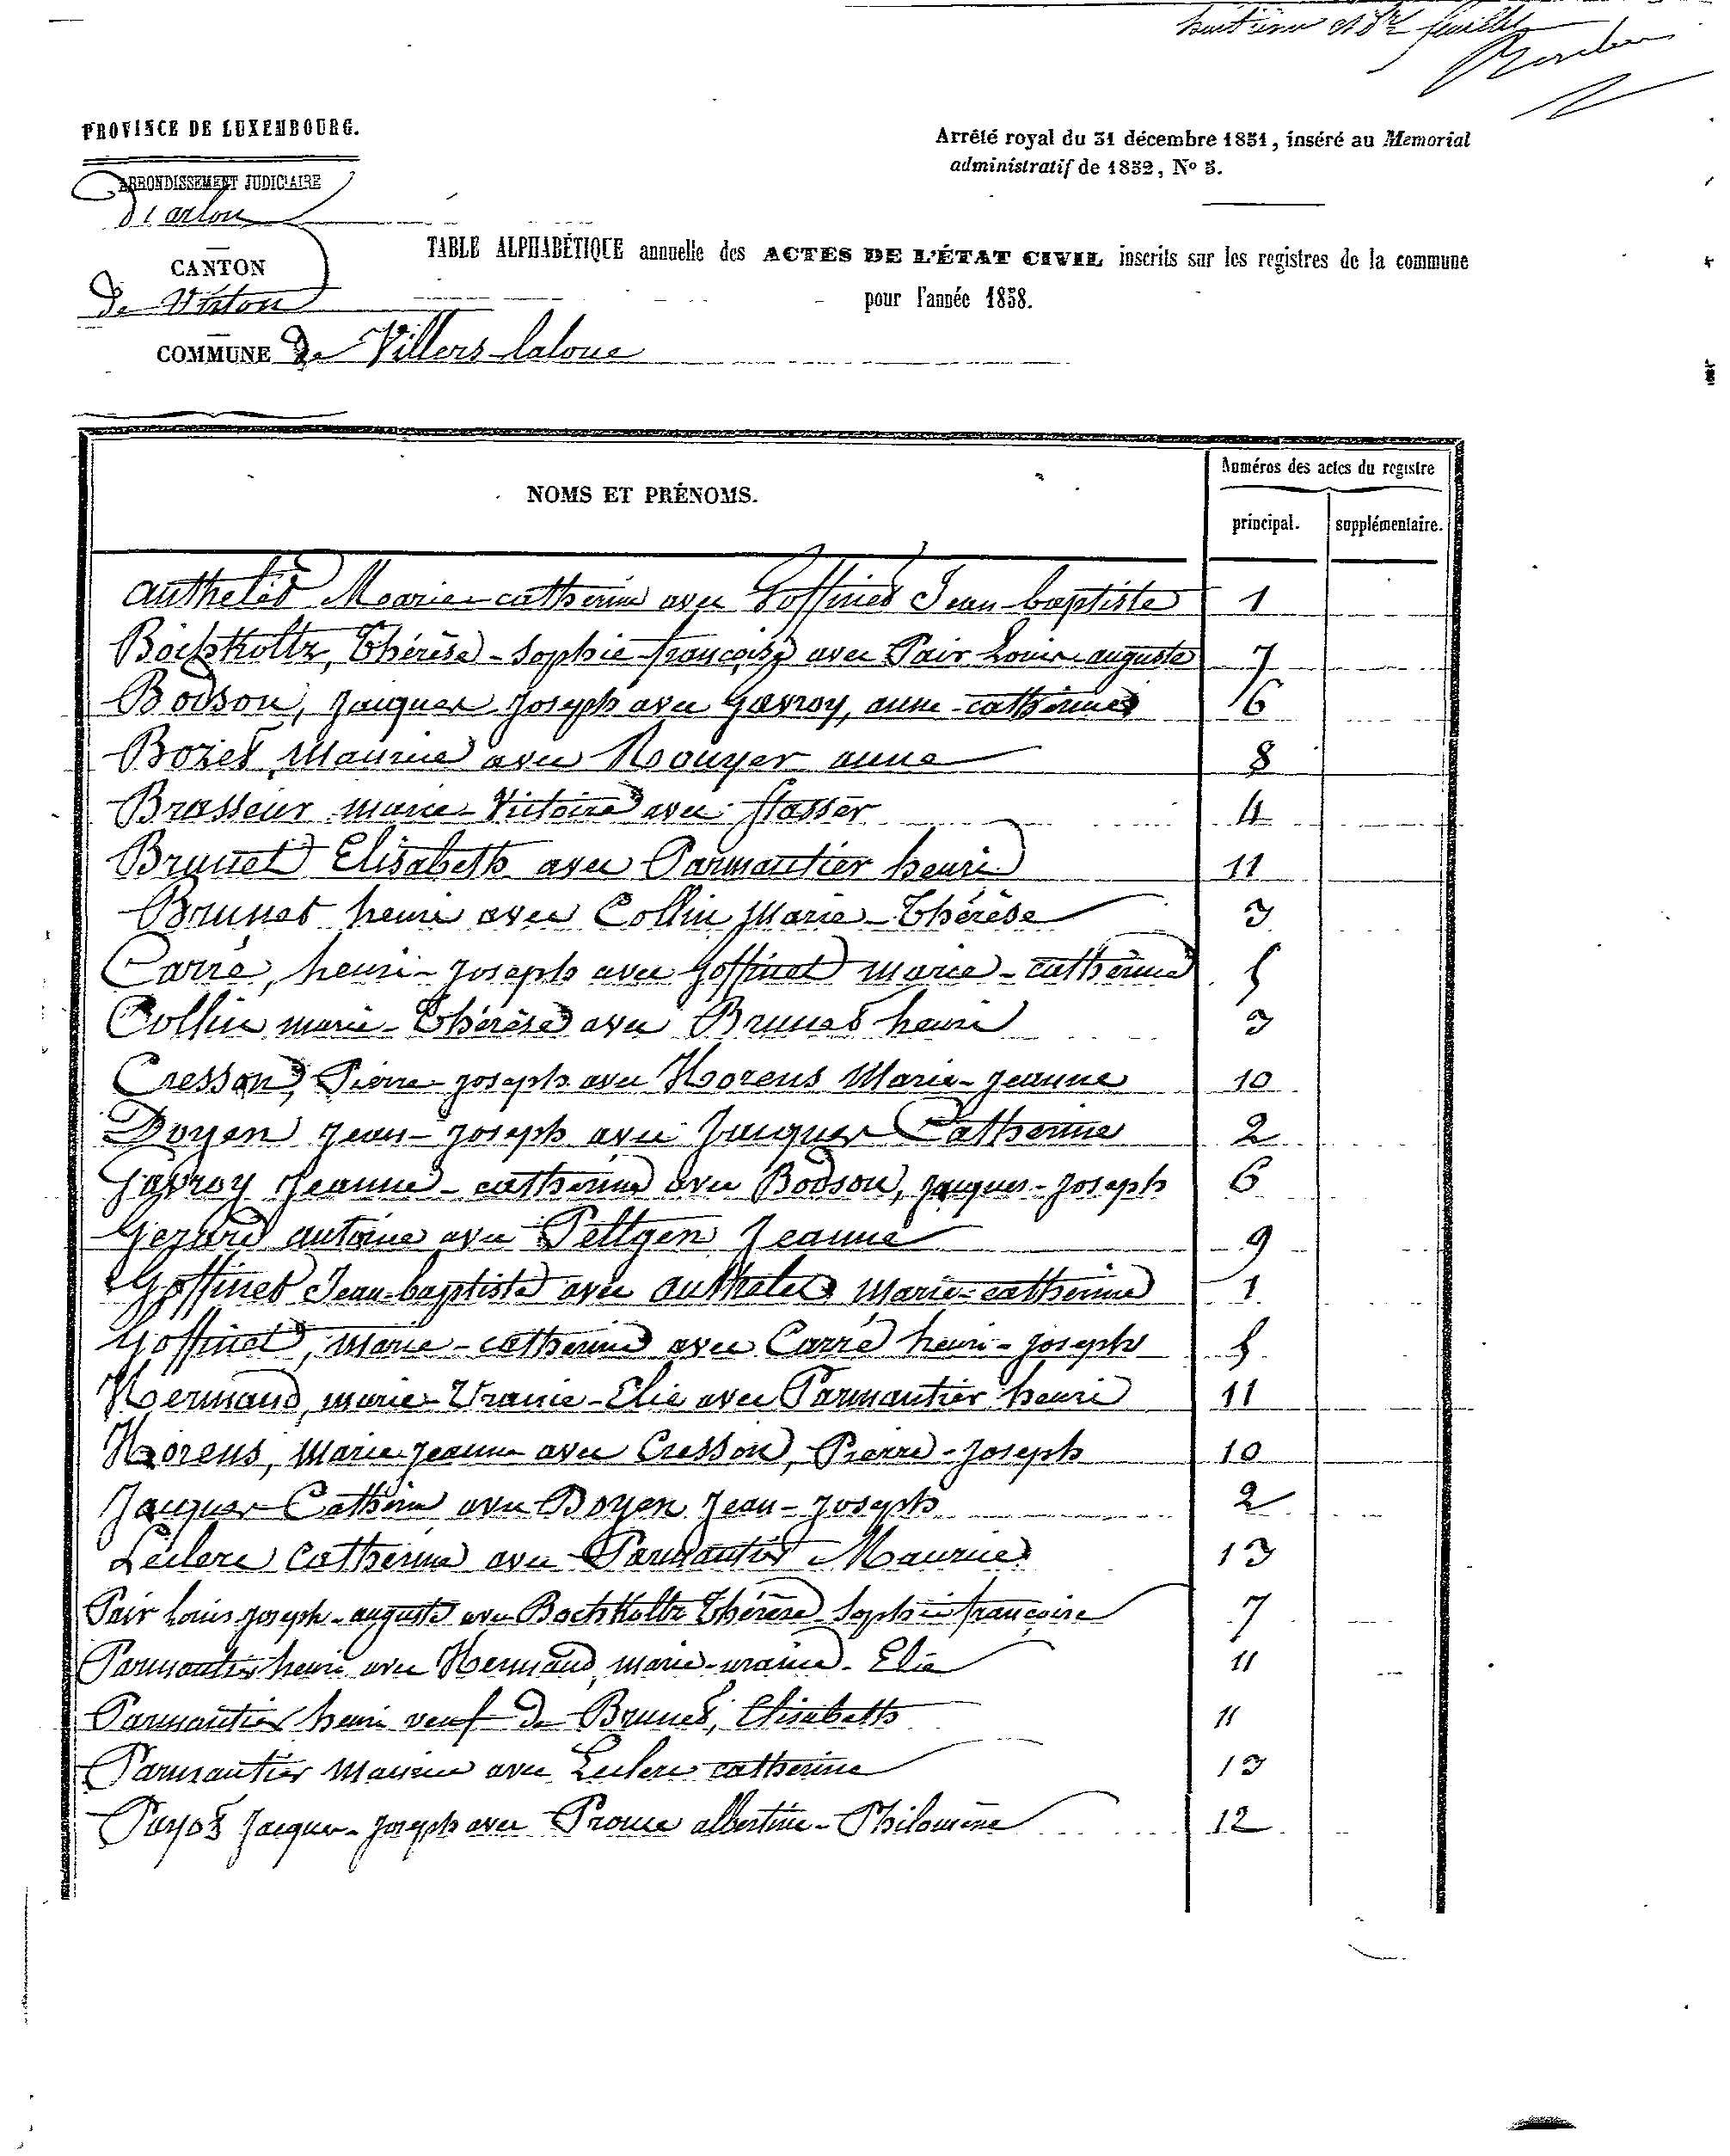 huitième et dr feuille
PROVINCE DE LUXEMBOURG.
Arrêté royal du 31 décembre 1831, inséré au Memorial
administratif de 1832, No 5.
ARRONDISSEMENT JUDICIAIRE
d'arlon
CANTON
de Virton
COMMUNE de Villers-laloue
TABLE ALPHABÉTIQUE annuelle des ACTES DE L'ÉTAT CIVIL inscrits sur les registres de la commune
pour l'année 1858.
NOMS ET PRÉNOMS.
Numéros des actes du registre
principal. supplémentaire.
Authelet Marie-catherine avec Goffinet Jean-baptiste 1
Bochkoltz, Thérèse-Sophie-françoise avec Pair Louis-auguste 7
Bodson, Jacques Joseph avec Gavroy, anne-catherine 6
Bozet Maurice avec Rouyer anne 8
Brasseur marie-Victoire avec Stasser 4
Brunet Elisabeth avec Parmantier henri 11
Brunet henri avec Collin Marie-Thérèse 3
Carré, henri-Joseph avec Goffinet marie-catherine 5
Collin marie-Thérèse avec Brunet henri 3
Cresson, Pierre-Joseph avec Horens Marie-Jeanne 10
Doyen Jean-Joseph avec Jacques Catherine 2
Gavroy Jeanne-catherine avec Bodson, Jacques-Joseph 6
Gerard antoine avec Peltgen Jeanne 9
Goffinet Jean-baptiste avec authelet Marie-catherine 1
Goffinet, Marie-catherine avec Carré henri-Joseph 5
Hermand, marie-Uranie-Elie avec Parmantier henri 11
Horens, Marie Jeanne avec Cresson, Pierre-Joseph 10
Jacques Catherine avec Doyen Jean-Joseph 2
Leclerc Catherine avec Parmantier Maurice 13
Pair Louis Joseph-auguste avec Bochkoltz Thérèse Sophie françoise 7
Parmantier henri avec Hermand, marie-uranie-Elie 11
Parmantier henri veuf de Brunet, Elisabeth 11
Parmantier Maurice avec Leclerc catherine 13
Puyot Jacques-Joseph avec Proue albertine-Philomène 12